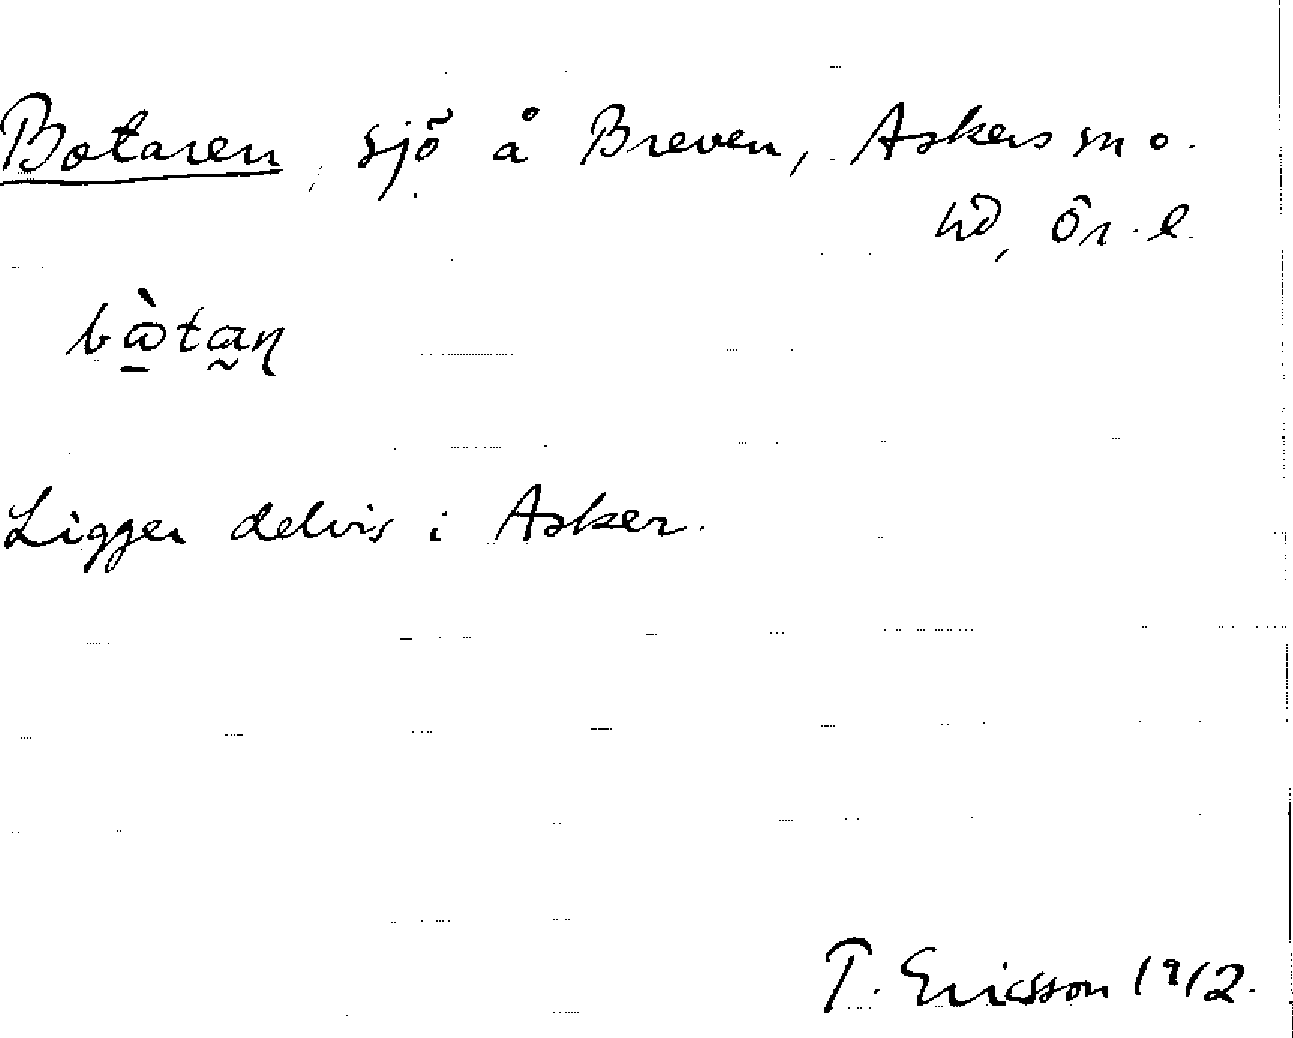 Botaren, sjö å Breven, Askers sn o.
hd, Ör. l.
bòtaɳ
Ligger delvis i Asker.
T. Ericsson 1912.